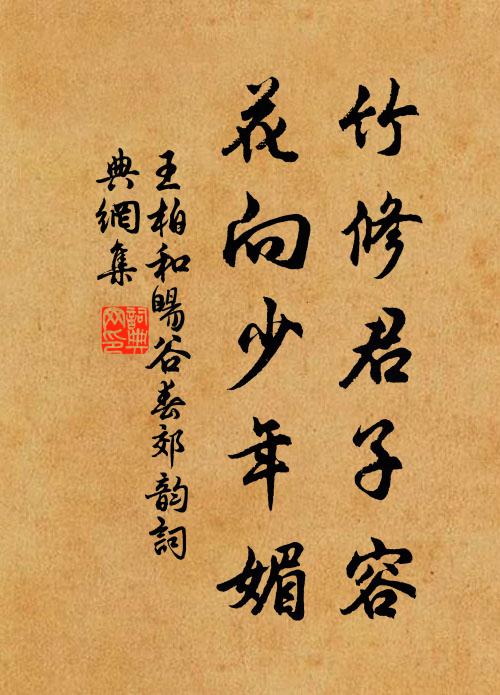 竹修君子容
花向少年媚
王柏和暘谷春郊韵詞
典網集
詞典網印